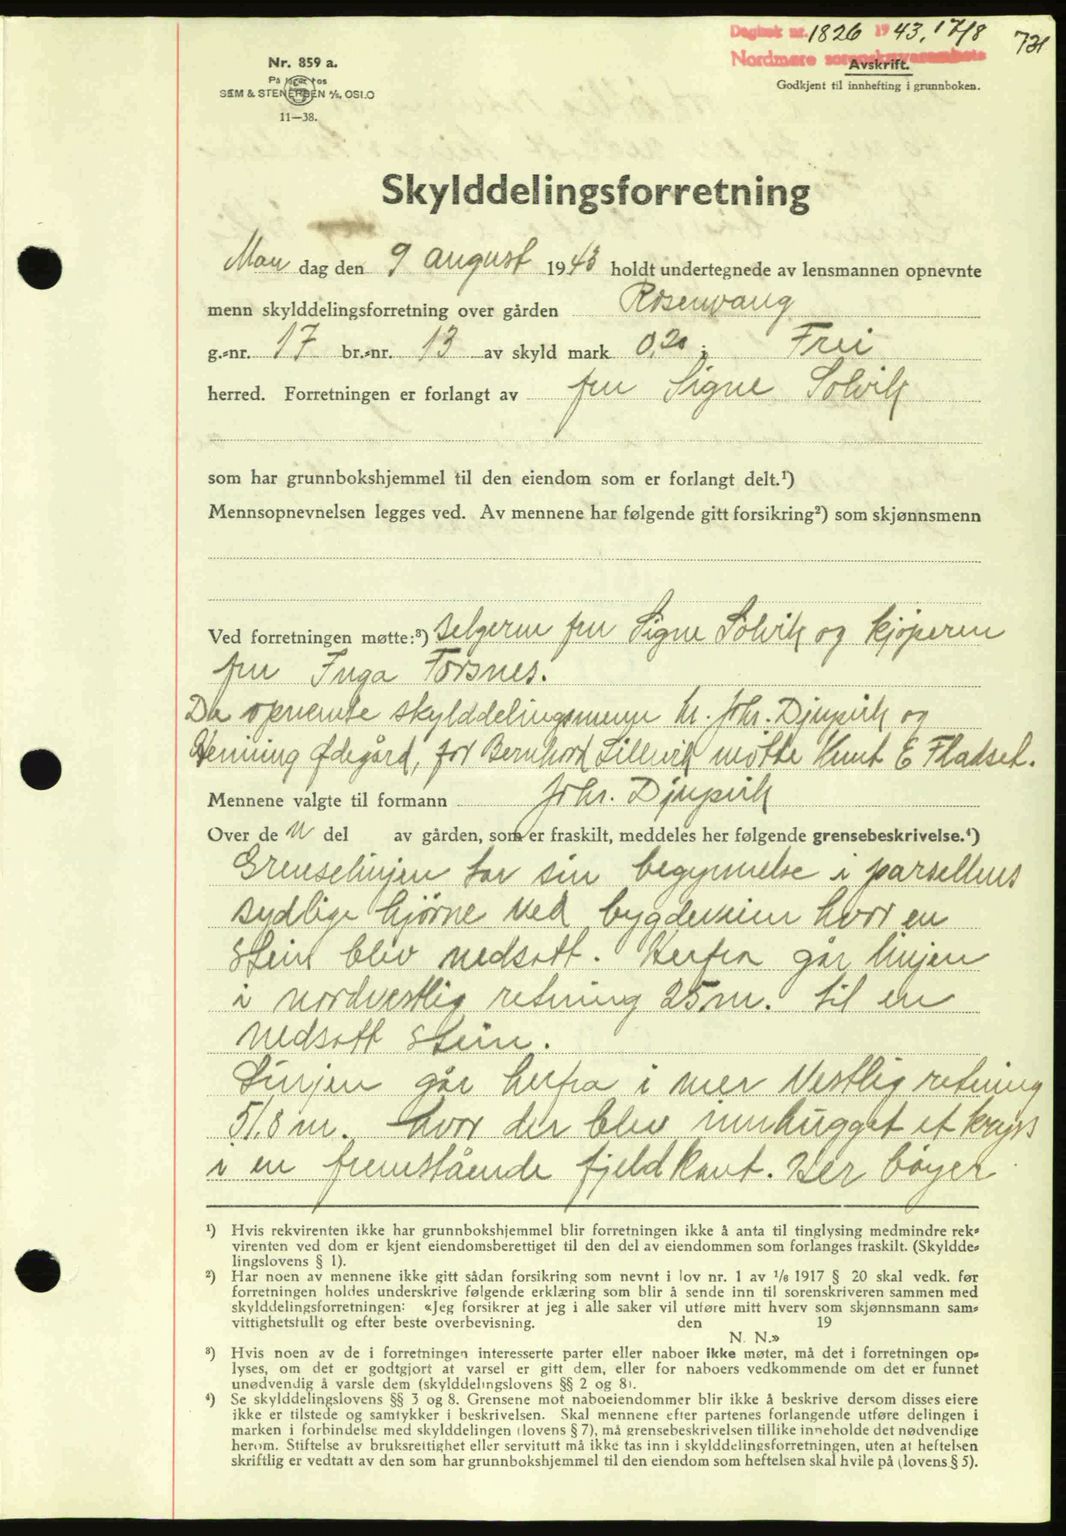 Dagbok nr. 1826 1943, 17/8 721
Nordmøre sorenskriverembete
Nr. 859 a.
På lager hos
SEM & STENERSEN A/S, OSLO
11—38.
Avskrift.
Godkjent til innhefting i grunnboken.
Skylddelingsforretning
Man dag den 9 august 1943 holdt undertegnede av lensmannen opnevnte
menn skylddelingsforretning over gården Rosenvang
g.-nr. 17 br.-nr. 13 av skyld mark 0,20 i Frei
herred. Forretningen er forlangt av fru Signe Solvik
som har grunnbokshjemmel til den eiendom som er forlangt delt.¹)
Mennsopnevnelsen legges ved. Av mennene har følgende gitt forsikring²) som skjønnsmenn
Ved forretningen møtte:³) selgeren fru Signe Solvik og kjøperen
fru Inga Forsnes.
De opnevnte skylddelingsmenn hr. Johr. Djupvik og
Henning Ødegård, for Bernhard Lillevik møtte Knut E Fladset.
Mennene valgte til formann Johr. Djupvik
Over den del av gården, som er fraskilt, meddeles her følgende grensebeskrivelse.⁴)
Grenselinjen tar sin begynnelse i parsellens
sydlige hjørne ved bygdeveien hvor en
stein blev nedsatt. Herfra går linjen
i nordvestlig retning 25 m. til en
nedsatt stein.
Linjen går herfra i mer vestlig retning
51.8 m. hvor der blev innhugget et kryss
i en fremstående fjeldkant. Her bøyer
¹) Hvis rekvirenten ikke har grunnbokshjemmel blir forretningen ikke å anta til tinglysing medmindre rek-
virenten ved dom er kjent eiendomsberettiget til den del av eiendommen som forlanges fraskilt. (Skyldde-
lingslovens § 1).
²) Har noen av mennene ikke gitt sådan forsikring som nevnt i lov nr. 1 av 1/6 1917 § 20 skal vedk. før
forretningen holdes underskrive følgende erklæring som blir å sende inn til sorenskriveren sammen med
skylddelingsforretningen: «Jeg forsikrer at jeg i alle saker vil utføre mitt hverv som skjønnsmann sam-
vittighetsfullt og efter beste overbevisning. den 19
N. N.»
³) Hvis noen av de i forretningen interesserte parter eller naboer ikke møter, må det i forretningen op-
lyses, om det er godtgjort at varsel er gitt dem, eller for naboers vedkommende om det er funnet
unødvendig å varsle dem (skylddelingslovens §§ 2 og 8).
⁴) Se skylddelingslovens §§ 3 og 8. Grensene mot naboeiendommer blir ikke å beskrive dersom disses eiere
ikke er tilstede og samtykker i beskrivelsen. Skal mennene efter partenes forlangende utføre delingen i
marken i forbindelse med skylddelingen (lovens § 7), må grensebeskrivelsen tillike inneholde det nødvendige
herom. Stiftelse av bruksrettighet eller servitutt må ikke tas inn i skylddelingsforretningen, uten at heftelsen
skriftlig er vedtatt av den som har grunnbokshjemmel til den eiendom som heftelsen skal hvile på (lovens § 5).